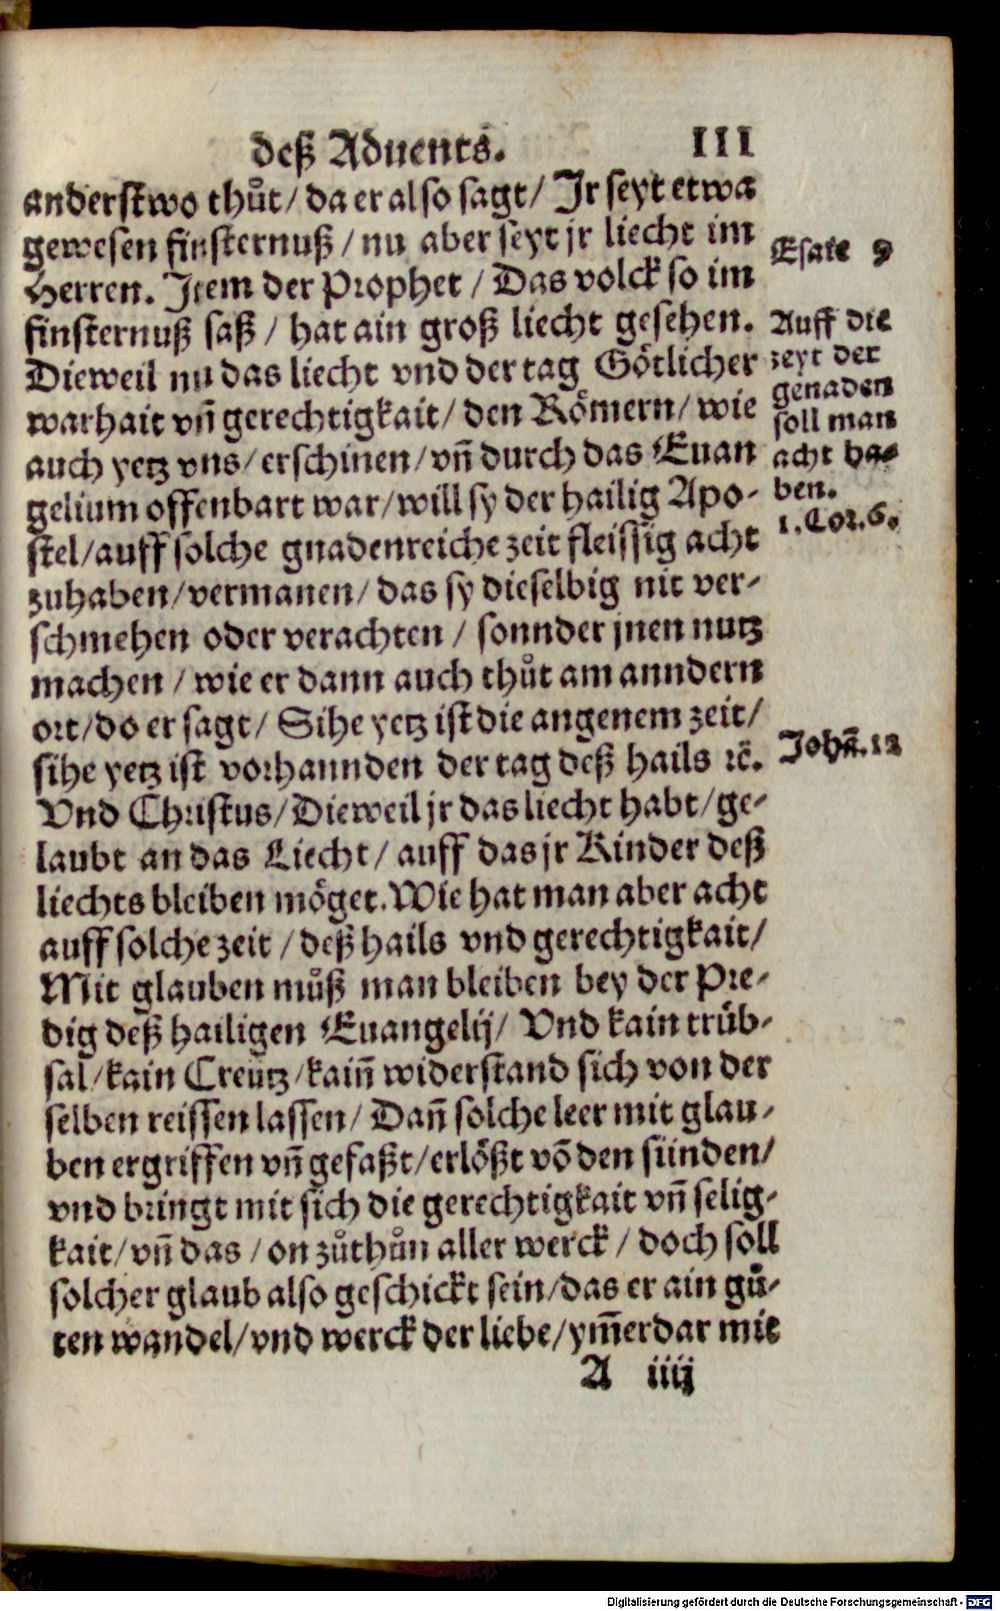 deß Aduents. III
anderstwo thůt/ da er also sagt/ Jr seyt etwa
gewesen finsternuß/ nu aber seyt jr liecht im
Herren. Jtem der Prophet/ Das volck so im
finsternuß saß/ hat ain groß liecht gesehen.
Dieweil nu das liecht vnd der tag Götlicher
warhait vñ gerechtigkait/ den Römern/ wie
auch yetz vns/ erschinen/ vñ durch das Euan
gelium offenbart war/ will sy der hailig Apo-
stel/ auff solche gnadenreiche zeit fleissig acht
zuhaben/ vermanen/ das sy dieselbig nit ver-
schmehen oder verachten/ sonnder jnen nutz
machen/ wie er dann auch thůt am anndern
ort/ do er sagt/ Sihe yetz ist die angenem zeit/
sihe yetz ist vorhannden der tag deß hails ꝛc̃.
Vnd Christus/ Dieweil jr das liecht habt/ ge-
laubt an das Liecht/ auff das jr Kinder deß
liechts bleiben möget. Wie hat man aber acht
auff solche zeit/ deß hails vnd gerechtigkait/
Mit glauben můß man bleiben bey der Pre-
dig deß hailigen Euangelij/ Vnd kain trüb-
sal/ kain Creütz/ kaiñ widerstand sich von der
selben reissen lassen/ Dañ solche leer mit glau-
ben ergriffen vñ gefaßt/ erlößt võ den sünden/
vnd bringt mit sich die gerechtigkait vñ selig-
kait/ vñ das/ on zůthůn aller werck/ doch soll
solcher glaub also geschickt sein/ das er ain gů-
ten wandel/ vnd werck der liebe/ ym̃erdar mit
A iiij
Esaie 9
Auff die
zeyt der
genaden
soll man
acht ha-
ben.
1. Cor. 6.
Johã. 12
Digitalisierung gefördert durch die Deutsche Forschungsgemeinschaft - DFG